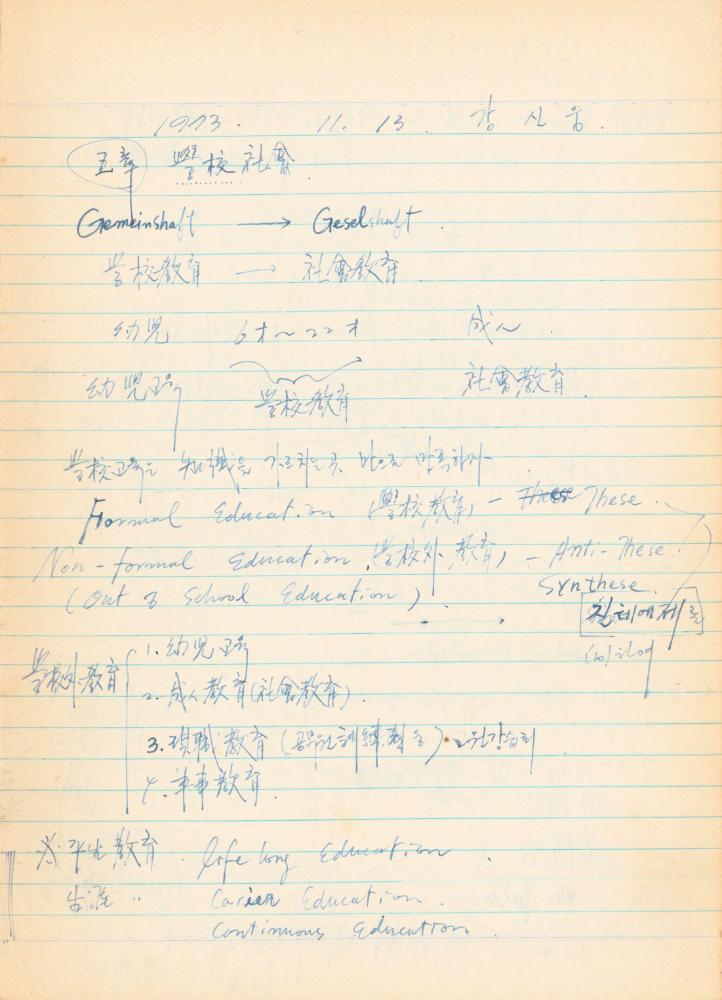 1973. 11. 13. 강신웅.
五章 學校社會.
Gemeinshaft → Geselshaft.
学校教育 → 社會教育.
幼児 6才~22才 成人.
幼児교육 学校教育 社會教育.
学校교육은 知識을 가르치는 곳
Formal Education (學校教育) - These These.
Non-formal Education (学校外 教育) - Anti-These.
(Out of School Education). Synthese.
진테에제를
위하여
学校外教育
1. 幼児교육
2. 成人教育(社會教育).
3. 現職教育 (공무원訓練 )
4. 軍事教育.
※ 平生教育. life long Education.
生涯 〃 Carieer Education.
Continuous Education.